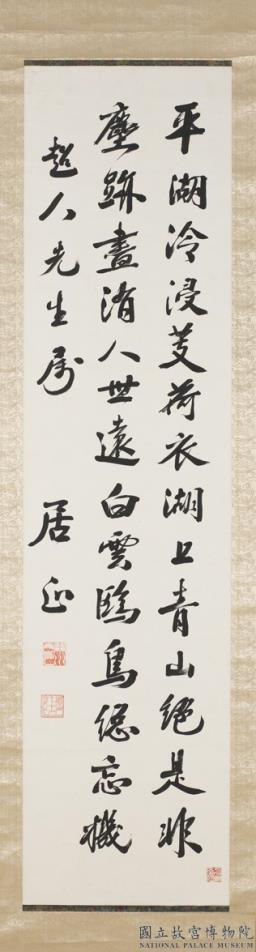 平湖冷浸芰荷衣湖上青山絕是非
塵跡盡消人世遠白雲鷗鳥總忘機
超人先生屬
居正
國立故宮博物院
NATIONAL PALACE MUSEUM